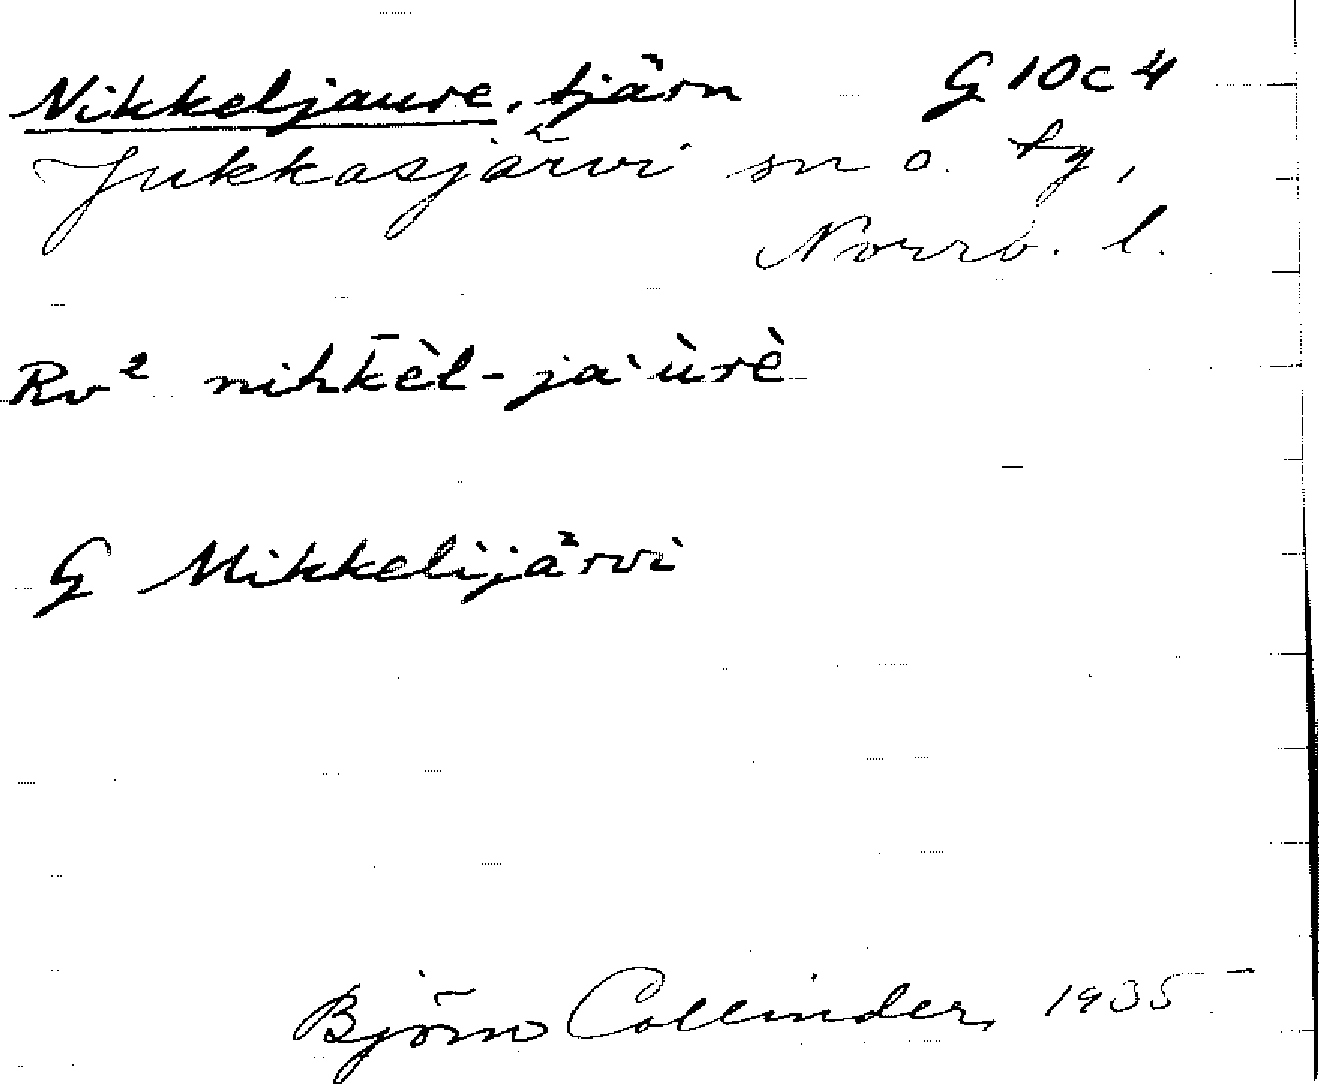 Nikkeljaure, tjärn G 10c 4
Jukkasjärvi sn o. tg,
Norrb. l.
Rv² nihk̄èl-ja'ùrè
G Mikkelijärvi
Björn Collinder, 1935